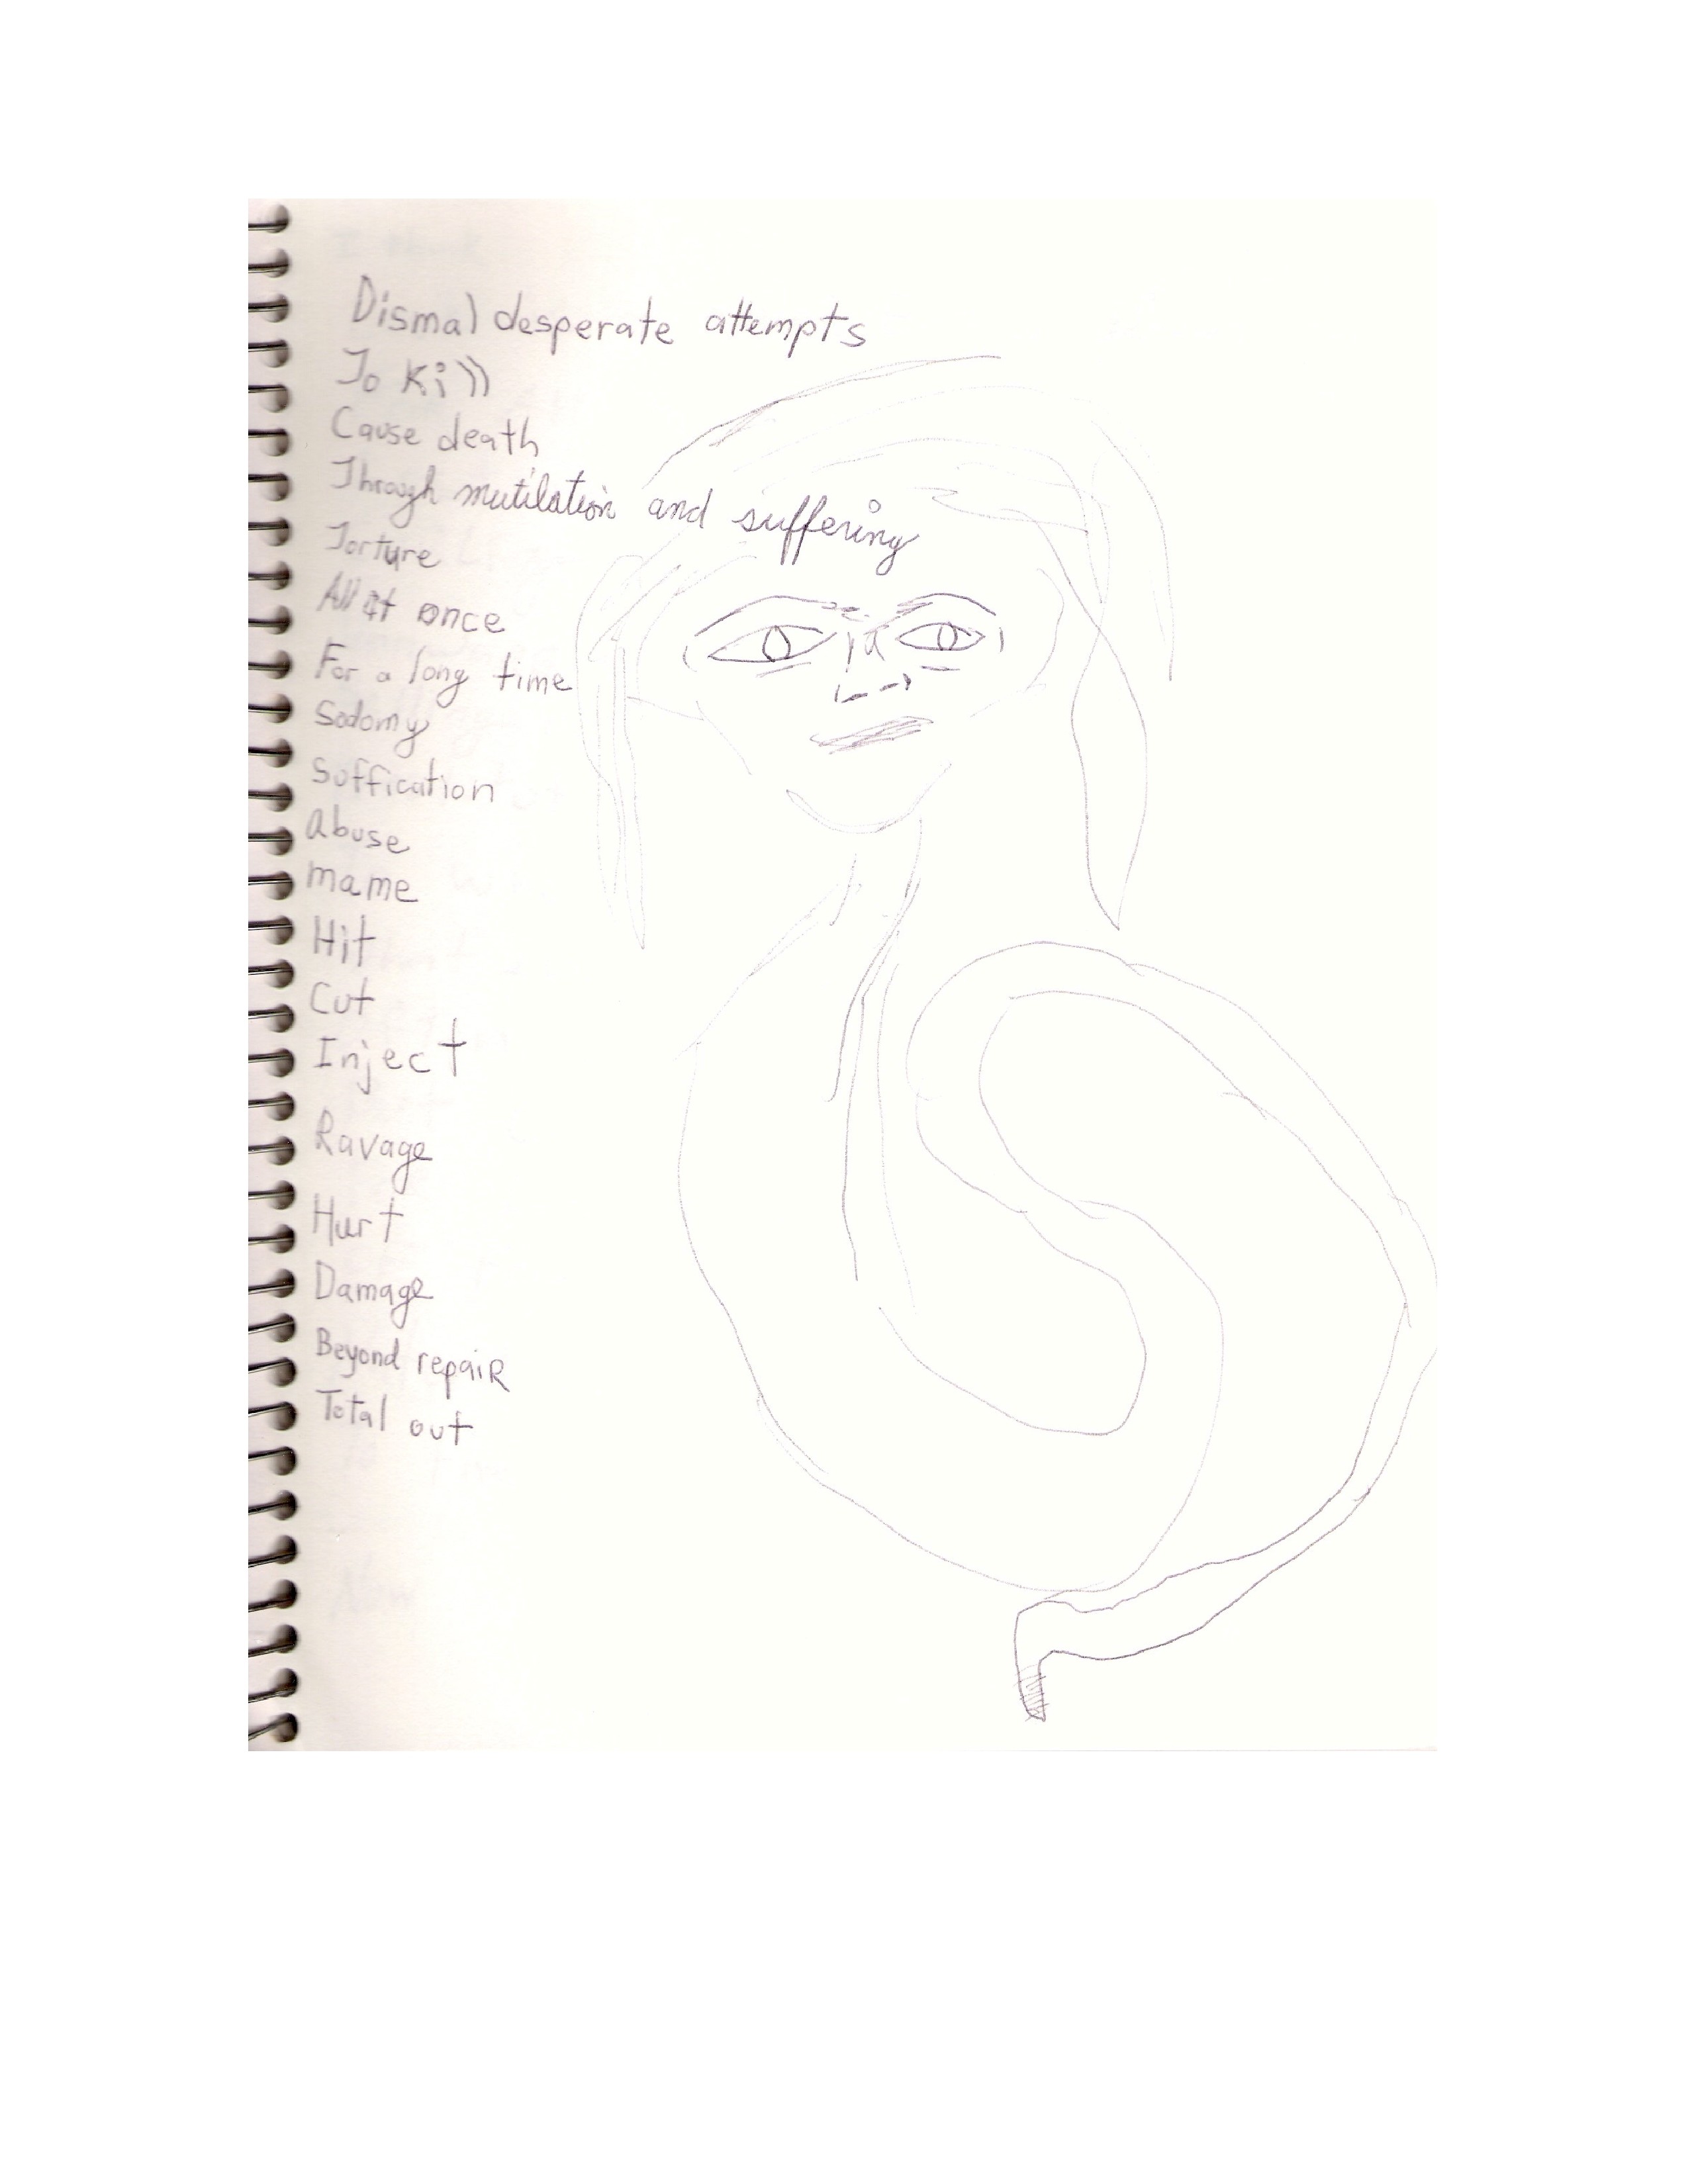 Dismal desperate attempts
To Kill
Cause death
Through mutilation and suffering
Torture
All at once
For a long time
Sodomy
Suffication
Abuse
mame
Hit
Cut
Inject
Ravage
Hurt
Damage
Beyond repaiR
Total out